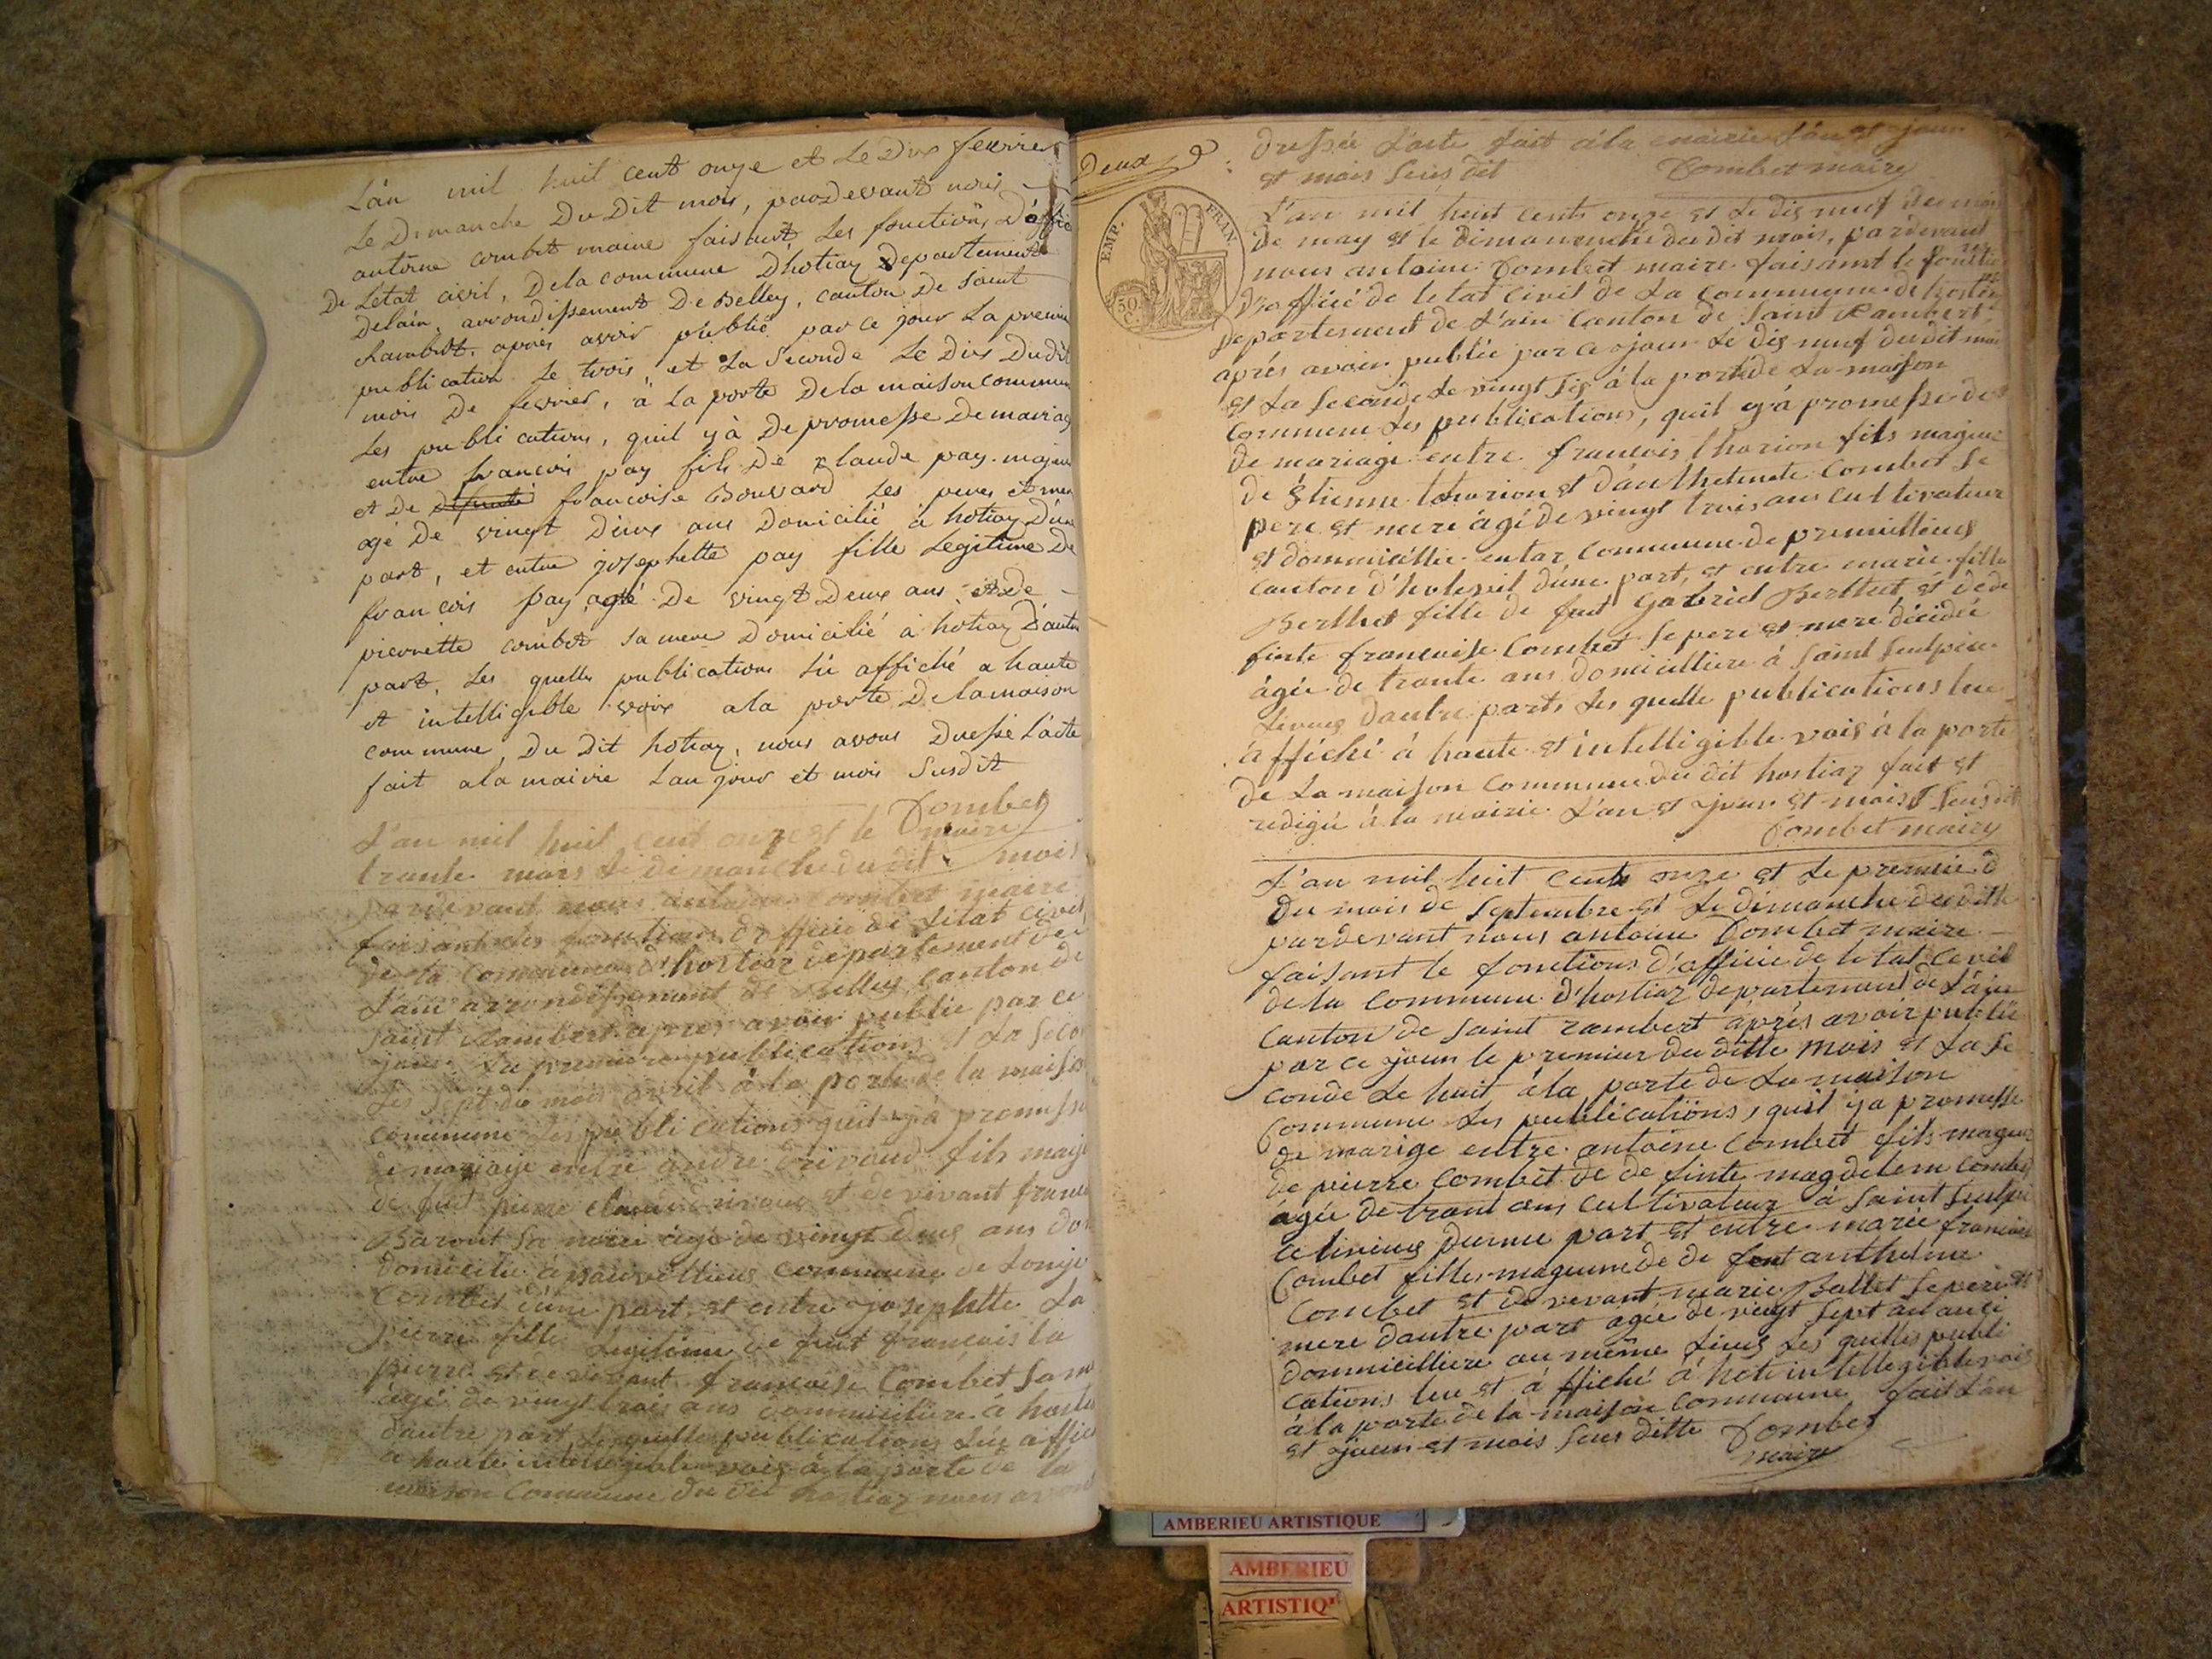 L'an mil huit cent onze et Le Dix fevrier
Le Dimanche Du Dit mois, pardevant nous
antoine combet maire faisant Les fonctions D'offic
De Letat civil, De la commune Dhotiaz Departement
Delain, arrondissement De Belley, canton De Saint
Rambert, après avoir publié par ce jour La premie
publication Le trois et La Seconde Le Dix Dudit
mois De fevrier, a La porte De la maison commune
Les publications, quil y à De promesse De mariag
entre francois pay fils De Claude pay majeur
et De defunte francoise Bouvard Les peres et mer
agé De vingt Deux ans Domicilié à hotiaz D'une
part, et entre josephette pay fille Legitime De
francois pay, agé De vingt Deux ans et De
pierrette combet sa mere Domicilié a hotiaz D'autre
part, Les quelles publications Lu affiché a haute
et intelligible voix a la porte De la maison
commune, Du Dit hotiaz, nous avons Dressé L'acte
fait a la mairie L'an jour et mois Susdit
Combet
maire
L'an mil huit cent onze et le
trante mars Le dimanche du dit mois
pardevant nous antoine combet maire
faisant les fonctions d'officié de Letat civil
de la commune d'hostiaz departement de
L'ain arrondissement de Belley canton de
saint Rambert apres avoir publie par ce
jour La premiere publications et La seco
Les sept du mois avril à la porte de la maison
commune Les publications quil y à promesse
de mariage entre andre fils maje
de fut pierre et de vivant
sa mere agé de vingt deus ans
domicilié à commune de Lonje
Combet d'une part, et entre josephette La
pierre fille Legitime de fut francois la
pierre et de vivant francoise Combet sa m
agé de vingt trois ans dommicilière à hosti
d'autre part, Les quelles publications Lu affic
a haute intelligible vois à la porte de la
maison Commune du dit hostiaz nous avons
Deux
EMP. FRAN
50 C
dressée L'acte fait à la mairie L'an et jour
et mois sus dit Combet maire
L'an mil huit cents onze et Le dis neuf de mois
de may et le dimanche du dit mois, pardevant
nous antoine Combet maire faisant le fonctio
d'officié de letat civil de La commune de hosti
departement de L'ain Canton de Saint Rambert
aprés avoir publié par ce jour Le dis neuf du dit moi
et La seconde Le vingt sis à la porte de La maison
commune Les publications, quil y à promesse de
de mariage entre francois thorion fils mageur
de Étienne thorion et d'anthelmete Combet se
pere et mere âgé de vingt trois ans cultivateur
et dommicillié commune de premillieus
canton d'hotevil d'une part, et entre marie fille
Berthet fille de fut Gabriel Berthet et de de
finte francoise Combet se pere et mere
âgée de trante ans domicilliere à saint sulpice
d'autre parts Les quelle publications lue
affiché à haute et intelligible vois à la porte
de La maison Commune du dit hostiaz fait et
redigée à la mairie L'an et jour et mois sus dit
Combet maire
L'an mil huit cents onze et Le premié
du mois de Septembre et Le dimanche du ditte
pardevant nous antoine Combet maire
faisant le fonctions d'officié de letat Cevil
de la Commune d'hostiaz departement de L'ain
Canton de Saint rambert aprés avoir publié
par ce jour le premier du ditte mois et La se
conde Le huit à la porte de La maison
Commune Les publications, quil y a promesse
de marige entre antoine Combet fils mageur
de pierre Combet de de finte magdelene Combet
agée de trant ans cultivateur à saint sulpi
ce part et entre marie francoise
Combet fille mageure de de fut anthelme
Combet et de vevant marie Ballet se pere et
mere d'autre part agée de vingt sept an aussi
dommicilliere au même Lieus Les quelles publi
cations lue et affiché à hote intellegible vois
à la porte de la maison Commune fait L'an
et jour et mois sus ditte Combet
maire
AMBERIEU ARTISTIQUE
AMBERIEU
ARTISTIQ